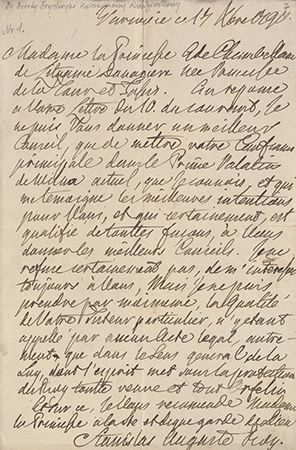 Nr 1.
Varsovie ce 17 Xbre 1790.
Madame la Princesse
de la Tour et Taxis. En reponse
à Votre Lettre du 10 du courant, je
ne puis Vous donner un meilleur
Conseil, que de mettre votre Confiance
principale dans le Prince Palatin
de Wilna actuel, que je connois, et qui
me temoigne les meilleures intentions
pour Vous, et qui certainement, est
qualifié de toutes façons, à Vous
donner les meilleurs Conseils. Je ne
refuse certainement pas, de m'interesser
toujours à Vous, Mais je ne puis
prendre par moi meme, la Qualité
de Votre Tuteur particulier, n'y etant
appellé par aucun Acte legal, autre-
ment que dans le Sens general de la
Loy, dont l'esprit met sous la protection
du Roy toute veuve et tout Orfelin
Et sur ce, je Vous recomande Madame
la Princesse à la Ste et digne garde de Dieu
Stanislas Auguste Roy.